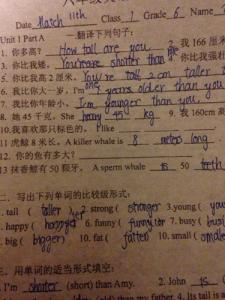 Date March 11th Class 1 Grade 6 Name
Unit 1 Part A 一翻译下列句子:
1. 你多高? How tall are you 2. 我 166 厘米
3. 你比我矮. You're shorter than 你比我强壮
5. 你比我高2厘米. You're tall 2 cm taller
6. 我比你大一岁. I'm 1 years older than you.
7. 我比你年龄小. I'm younger than you.
8. 她 45 千克. She 45 kg 9. 我 160cm
10.我喜欢那只棕色的. I like
11 虎鲸 8 米长. A killer whale is 8 meters long
12. 你的鱼有多大?
13 抹香鲸有 50 颗牙. A sperm whale is 50 teeth
二、写出下列单词的比较级形式:
1. tall ( taller 2. strong ( stronger 3.young (
happy ( 6. funny ( funnyier 7. busy (
big ( biggger) 10. fat ( fatter) 10. small (
三. 用单词的适当形式填空:
1. I'm shorter (short) than Amy. 2. John is
than his father. 4. Its tail is